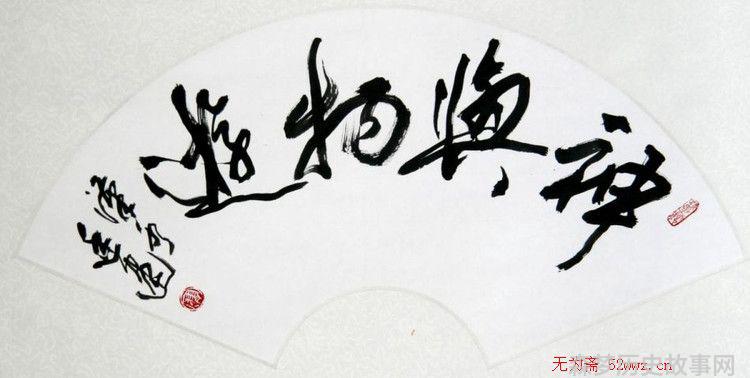 神與物遊
无为斋 52wwz.cn
历史故事网